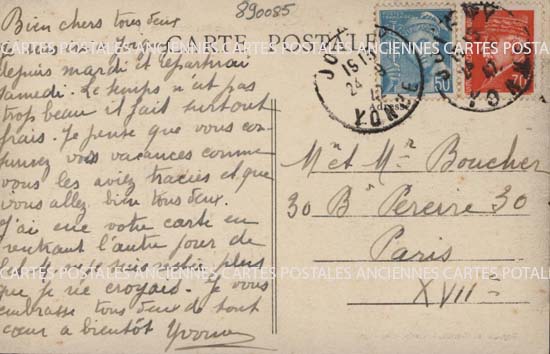 890085
CARTE POSTALE
Bien chers tous deux
depuis mardi et repartirai
samedi. Le temps n'est pas
trop beau il fait surtout
frais. Je pense que vous
vos vacances comme
vous les aviez tracées et que
vous allez bien tous deux.
J'ai eue votre carte en
rentrant l'autre jour de
plus
que je ne croyais. Je vous
embrasse tous deux de tout
cœur à bientôt Yvonne
JOIGNY
YONNE
50
70
Adresse
Mr et Mme Boucher
30 Bd Pereire 30
Paris
XVIIe
CARTES POSTALES ANCIENNES CARTES POSTALES ANCIENNES CARTES POSTAL